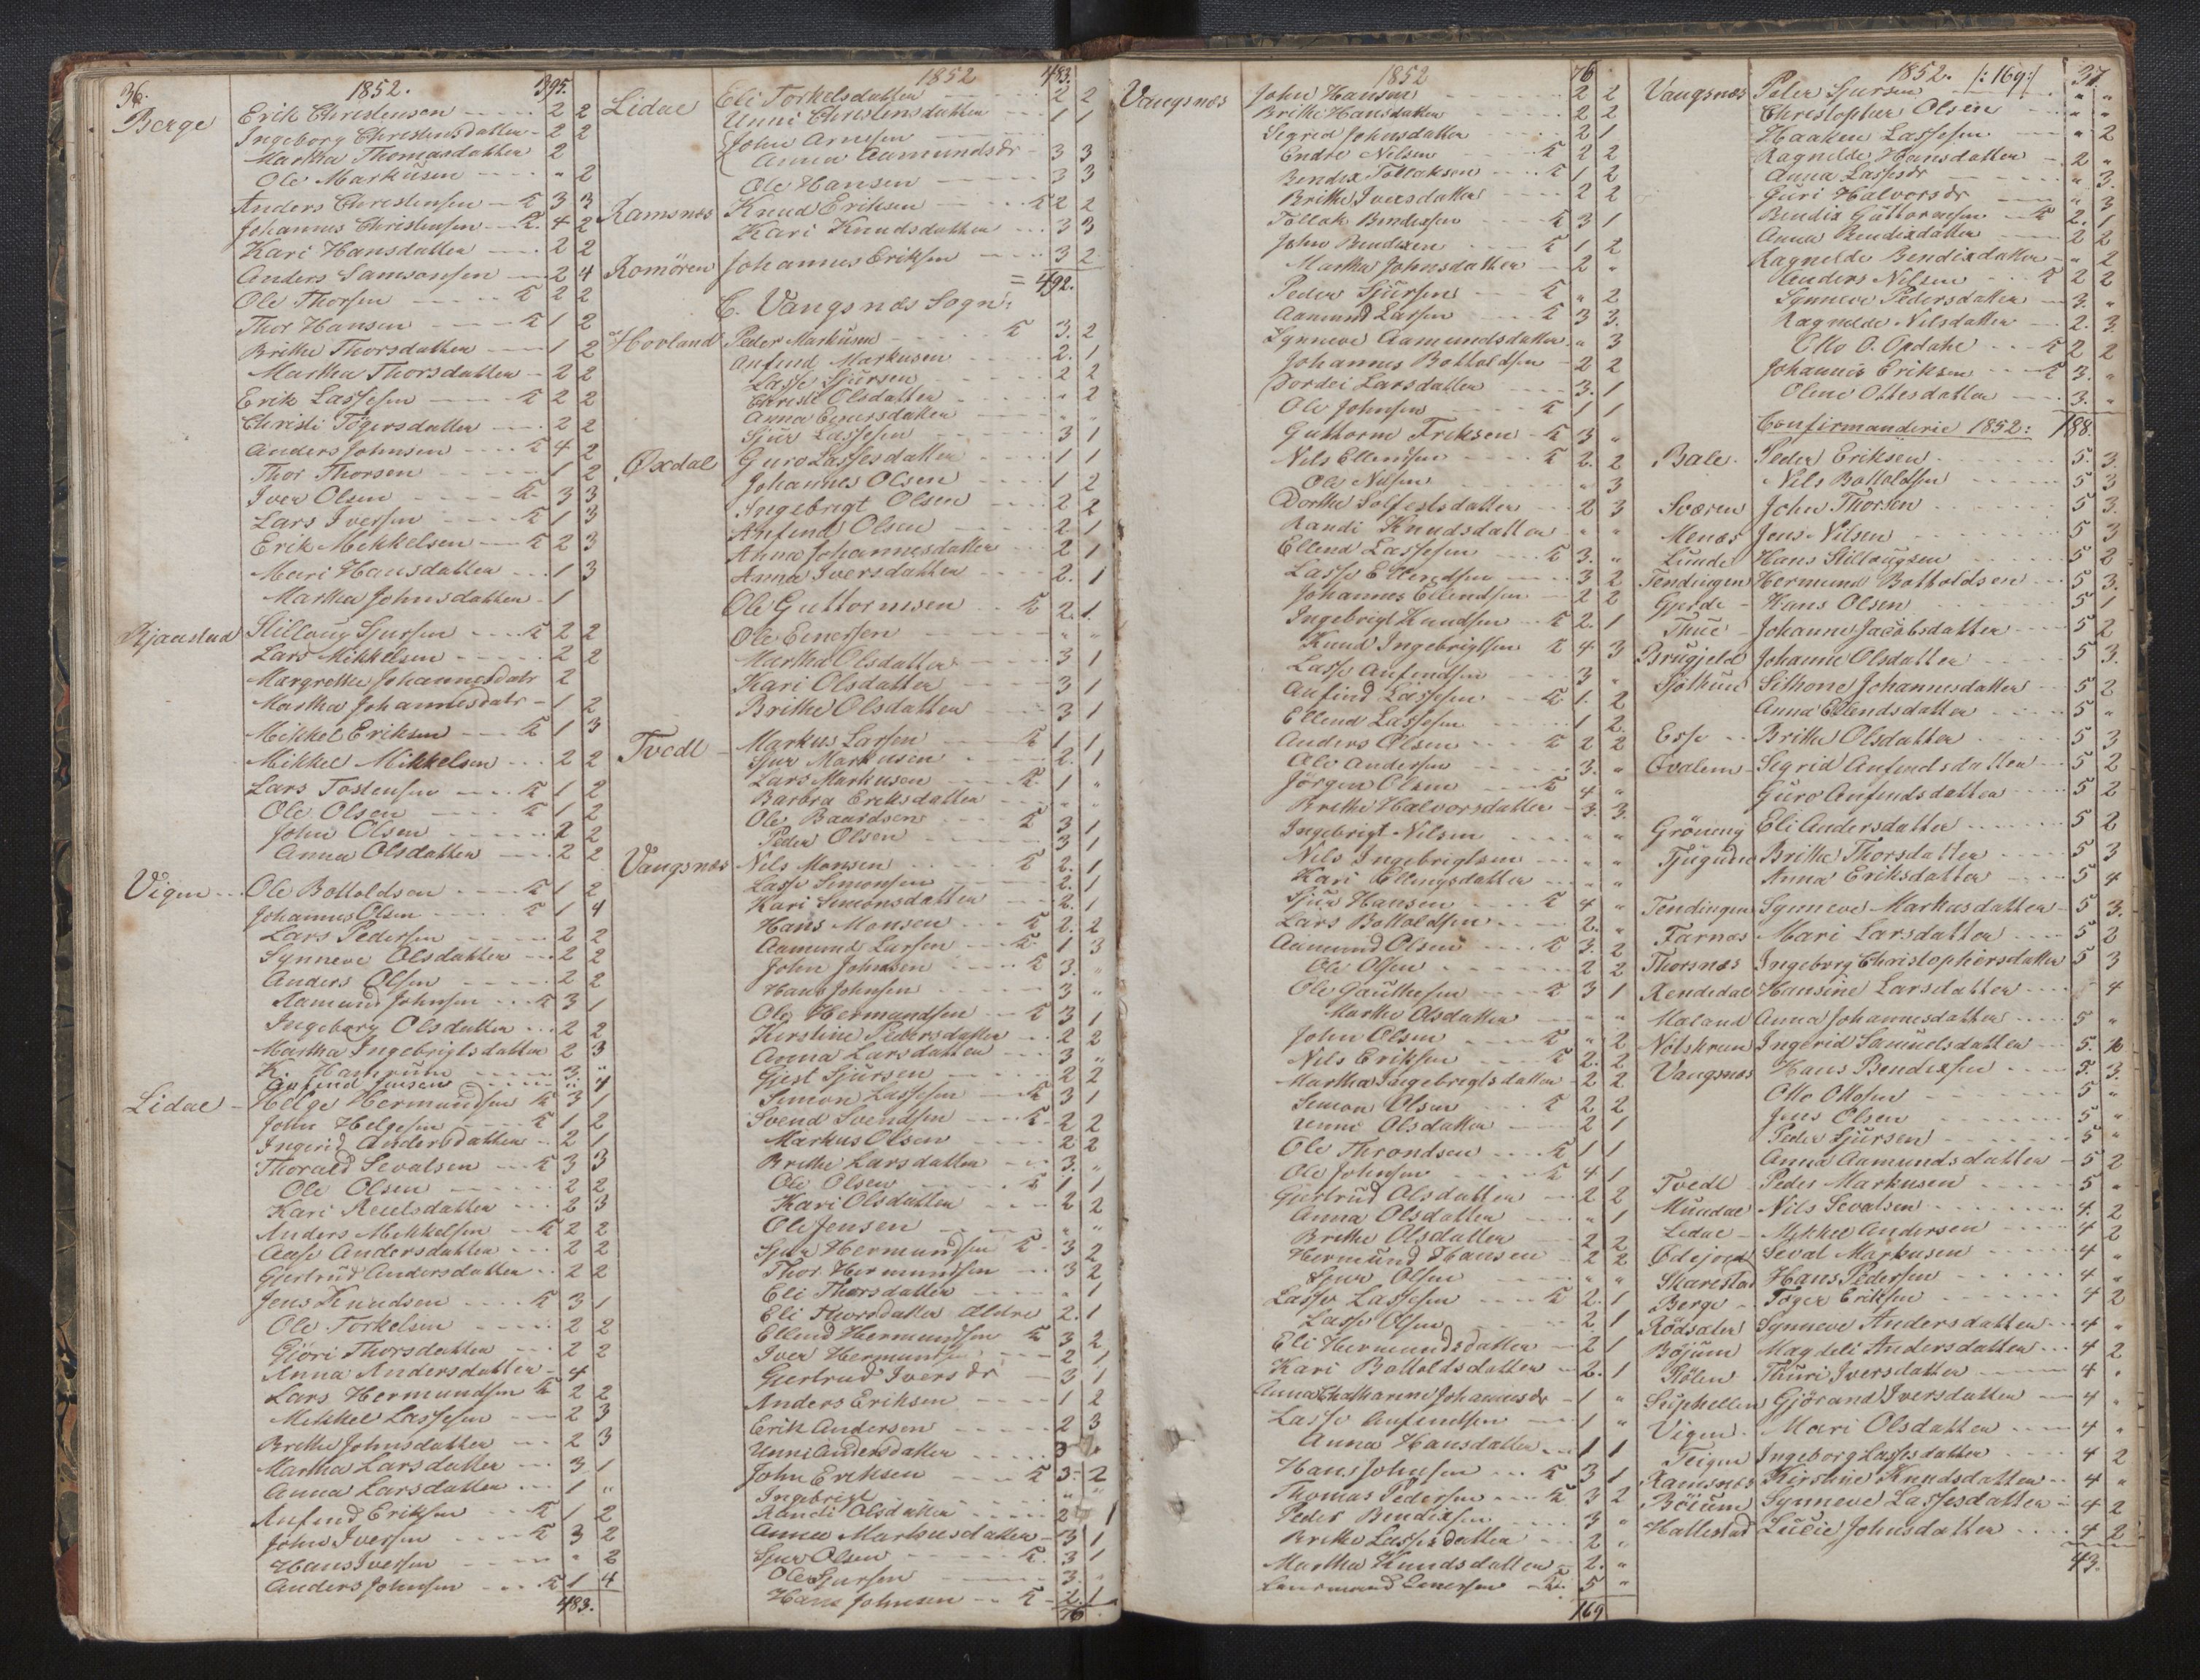 36. 1852. 395.
Berge Erik Christensen 2 2
Ingeborg Christensdatter 2 2
Martha Thomasdatter 2
Ole Markusen " 2
Anders Christensen K 3 3
Johannes Christensen K. 4 2
Kari Hansdatter 2 2
Anders Samsonsen 2 4
Ole Thorsen K 2 2
Thor Hansen K 1 2
Brithe Thorsdatter 1 2
Martha Thorsdatter 2 2
Erik Lassesen K 2 2
Christi Tögersdatter 2 2
Anders Johnsen K 4 2
Thor Thorsen 1 2
Iver Olsen K 3 3
Lars Iversen K 1 3
Erik Mikkelsen K 2 3
Mari Hansdatter 1 3
Martha Johnsdatter 1
Kjanstad Stilloug Sjursen K 2 2
Lars Mikkelsen 2 2
Margrethe Johannesdatr 2
Martha Johannesdatr 1 2
Mikkel Eriksen K 1 3
Mikkel Mikkelsen 2 2
Lars Tostensen K 1 2
Ole Olsen K 1 2
John Olsen 2 2
Anna Olsdatter 2 2
Vigen Ole Bottoldsen K 1 2
Johannes Olsen K 1 4
Lars Pedersen 2 2
Synneve Olsdatter 2 2
Anders Olsen 2 2
Aamund Johnsen K 3 1
Ingeborg Olsdatter 2 2
Martha Ingebrigtsdatter 2 3
K. 3 "
Anfind Jensen " 4
Lidal Helge Hermundsen K 3 1
John Helgesen K 1 2
Ingerid Andersdatter 2 1
Thorald Sevalsen K 3 3
Ole Olsen 2 2
Kari 2 3
Anders Mikkelsen K 2 2
Aase Andersdatter 2 2
Gjertrud Andersdatter 2 2
Jens Knudsen K 3 1
Ole Torkelsen 2 2
Gjöri Thorsdatter 2 2
Anna Andersdatter 4
Lars Hermundsen K 2 2
Mikkel Lassesen 2 3
Brithe Johnsdatter 2 3
Martha Larsdatter 3 1
Anna Larsdatter 1 "
Anfind Eriksen K 1 2
John Iversen K 3 2
Hans Iversen " 2
Anders Johnsen K 1 4
483.
1852 483.
Lidal Eli Torkelsdatter 2 2
Unni Christensdatter 1 1
John Arnesen
Anna Aamundsdr 3 3
Ole Hansen 3 3
Ramsnæs Knud Eriksen K 2 2
Kari Knudsdatter 3 3
Romören Johannes Eriksen 3 2
= 492.
C. Vangsnæs Sogn:
Hovland Peder Markusen K 3. 2
Anfind Markusen 2. 1
Lasse Sjursen 2 2
Christi Olsdatter " 2
Anna Enersdatter " "
Sjur Lassesen 3 1
Oxdal Guro Lassesdatter 1 1
Johannes Olsen 1 2
Ingebrigt Olsen 2 2
Anfind Olsen 2 1
Anna Johannesdatter 2 1
Anna Iversdatter 2. 1
Ole Guttormsen K 2. 1.
Ole Enersen " "
Martha Olsdatter 3 1
Kari Olsdatter 3 1
Brithe Olsdatter 3 1
Tvedt Markus Larsen K 1 1
Sjur Markusen 2. 1
Lars Markusen K. 1 "
Barbra Eriksdatter " "
Ole Baardsen K 3 1
Peder Olsen 3 1
Vangsnæs Nils Monsen K 2. 1
Lasse Simonsen 2. 1
Kari Simonsdatter 2. 1
Hans Monsen K 2. 2
Aamund Larsen K 1 3
John Johnsen K 3. "
Hans Johnsen 3 "
Ole Hermundsen K 3 1
Kirstine Pedersdatter 2 2
Anna Larsdatter 3 "
Gjest Sjursen 2 2
Simon Lassesen K 3 1
Svend Svendsen K 2 2
Markus Olsen 2 2
Brithe Larsdatter 3. "
Ole Olsen K 1 1
Kari Olsdatter 2 2
Ole Jensen " "
Sjur Hermundsen K 3 2
Thor Hermundsen 3 2
Eli Thorsdatter " 1
Eli Thorsdatter ældre 2. 1
Ellend Hermundsen K 3 2
Iver Hermundsen 2 1
Gjertrud Iversdr 3 1
Anders Eriksen 1 2
Erik Andersen 2 3
Unni Andersdatter 3
John Eriksen K 3. 2
Ingebrigt " "
Randi Olsdatter 2 1
Anna Markusdatter 3 1
Sjur Olsen K. 3 1
Ole Sjursen 3. "
Hans Johnsen K 2. 1
76
1852 76
Vangsnæs John Hansen 2 2
Brithe Hansdatter 2 2
Sigrid Johnsdatter 2 1
Endre Nilsen K 2 2
Bendix Tollaksen K 1 2
Brithe Iversdatter 2 2
Tollak Bendixsen K 3 1
John Bendixen K 1 2
Martha Johnsdatter 2 "
Peder Sjursen K " 2
Aamund Larsen K 3 3.
Synneve Aamundsdatter " 3
Johannes Bottoldsen 2 2
Dordei Larsdatter 3. 1
Ole Johnsen K 1 1
Guttorm Eriksen K 3 "
Nils Ellendsen K 2. 2
Ole Nilsen " 3
Dorthe Solfestsdatter 2 3
Randi Knudsdatter " "
Ellend Lassesen K 3. "
Lasse Ellendsen 3 2
Johannes Ellendsen 2 2
Ingebrigt Knudsen K 2. 1
Knud Ingebrigtsen K 4 3
Lasse Anfindsen 3 "
Anfind Lassesen K 1. 2
Ellend Lassesen 1 2.
Anders Olsen K 2 2
Ole Andersen 3. "
Jörgen Olsen K 4 "
Brithe Halvorsdatter 3. 3.
Ingebrigt Nilsen " "
Nils Ingebrigtsen " "
Kari Ellingsdatter " "
Sjur Hansen K 4 "
Lars Bottoldsen 2. "
Aamund Olsen K 3. 2
Ole Olsen 2 2
Ole Gauthesen K 3 1
Marthe Olsdatter " "
John Olsen K " 2
Nils Eriksen K 2. 2
Martha Ingebrigtsdatter 2 2
Simon Olsen K 2 2
Unni Olsdatter 2 1
Ole Throndsen K 1 1
Ole Johnsen K 4 1
Gjertrud Olsdatter 2 2
Anna Olsdatter " 1
Brithe Olsdatter 2 2
Hermund Hansen 2 2
Sjur Olsen " "
Lasse Lassesen K 2. 1
Lasse Olsen 2. 1
Eli Hermundsdatter 2 1
Kari Bottoldsdatter 2. 1
Anna Chatharine Johannesdr 1 "
Lasse Anfindsen 1 "
Anna Hansdatter 1 1
Hans Johnsen K 3 1
Thomas Pedersen K 3 2
Peder Bendixsen 3 "
Brithe Lassesdatter 2 "
Martha Knudsdatter 2. "
5 "
169
1852. /:169:/ 37
Vangsnæs Peter Sjursen " "
Christopher Olsen " "
Haaken Lassesen " 2
Ragnilde Hansdatter 2 "
Anna Lassesdr " 3.
Guri Halvorsdr " 3
Bendix Guttormsen K 2. 1
Anna Bendixdatter 2 2
Ragnilde Bendixdatter " 2
Anders Nilsen K 2 2
Synneve Pedersdatter 3. "
Ragnilde Nilsdatter 2. 3.
Otto O. Opdahl K 2 2
Johannes Eriksen K 3. "
Oline Ottesdatter 3. "
Confirmanderie 1852: 188.
Bale Peder Eriksen 5. 3.
Nils Bottoldsen 5 3
Sværen John Thorsen 5 3.
Menæs Jens Nilsen 5 3
Lunde Hans Stillougsen 5 2
Tendingen Hermund Bottoldsen 5 3.
Gjerde Hans Olsen 5 1
Thue Johanne Jacobsdatter 5 2
Brugjeld Johanne Olsdatter 5 3.
Sjöthun Sithone Johannesdatter 5 2
Anna Ellendsdatter 5 "
Esse Brithe Olsdatter 5 3
Ovalem Sigrid Anfindsdatter 5 2
Guro Anfindsdatter 5 2
Gröneng Eli Andersdatter 5 2
Tjugum Brithe Thorsdatter 5 3
Anna Eriksdatter 5 4
Tendingen Synneve Markusdatter 5 3.
Farnæs Mari Larsdatter 5 2
Thorsnæs Ingeborg Christophersdatter 5 3
Rendedal Hansine Larsdatter 4
Maland Anna Johannesdatter 5 "
Ingerid Samuelsdatter 5.
Vangsnæs Hans Bendixsen 5. 3.
Otto Ottosen 5 "
Jens Olsen 5 "
Peder Sjursen 5 "
Anna Aamundsdatter 5 2
Tvedt Peder Markusen 5 "
Mundal Nils Sevalsen 4. 2
Lidal Mikkel Andersen 4 2
Ödejord Seval Markusen 4 "
Skarestad Hans Pedersen 4 "
Berge Töger Eriksen 4 2
Rödsæter Synneve Andersdatter 4 "
Böjum Magdeli Andersdatter 4 2
Stölen Tauri Iversdatter 4 "
Suphellen Gjörand Iversdatter 4 "
Vigen Mari Olsdatter 4 "
Teigen Ingeborg Lassesdatter 4 2
Ramsnæs Kirstine Knudsdatter 4 "
Böium Synneve Lassesdatter 4 2
Hallestad Lucie Johnsdatter 4 2
43.